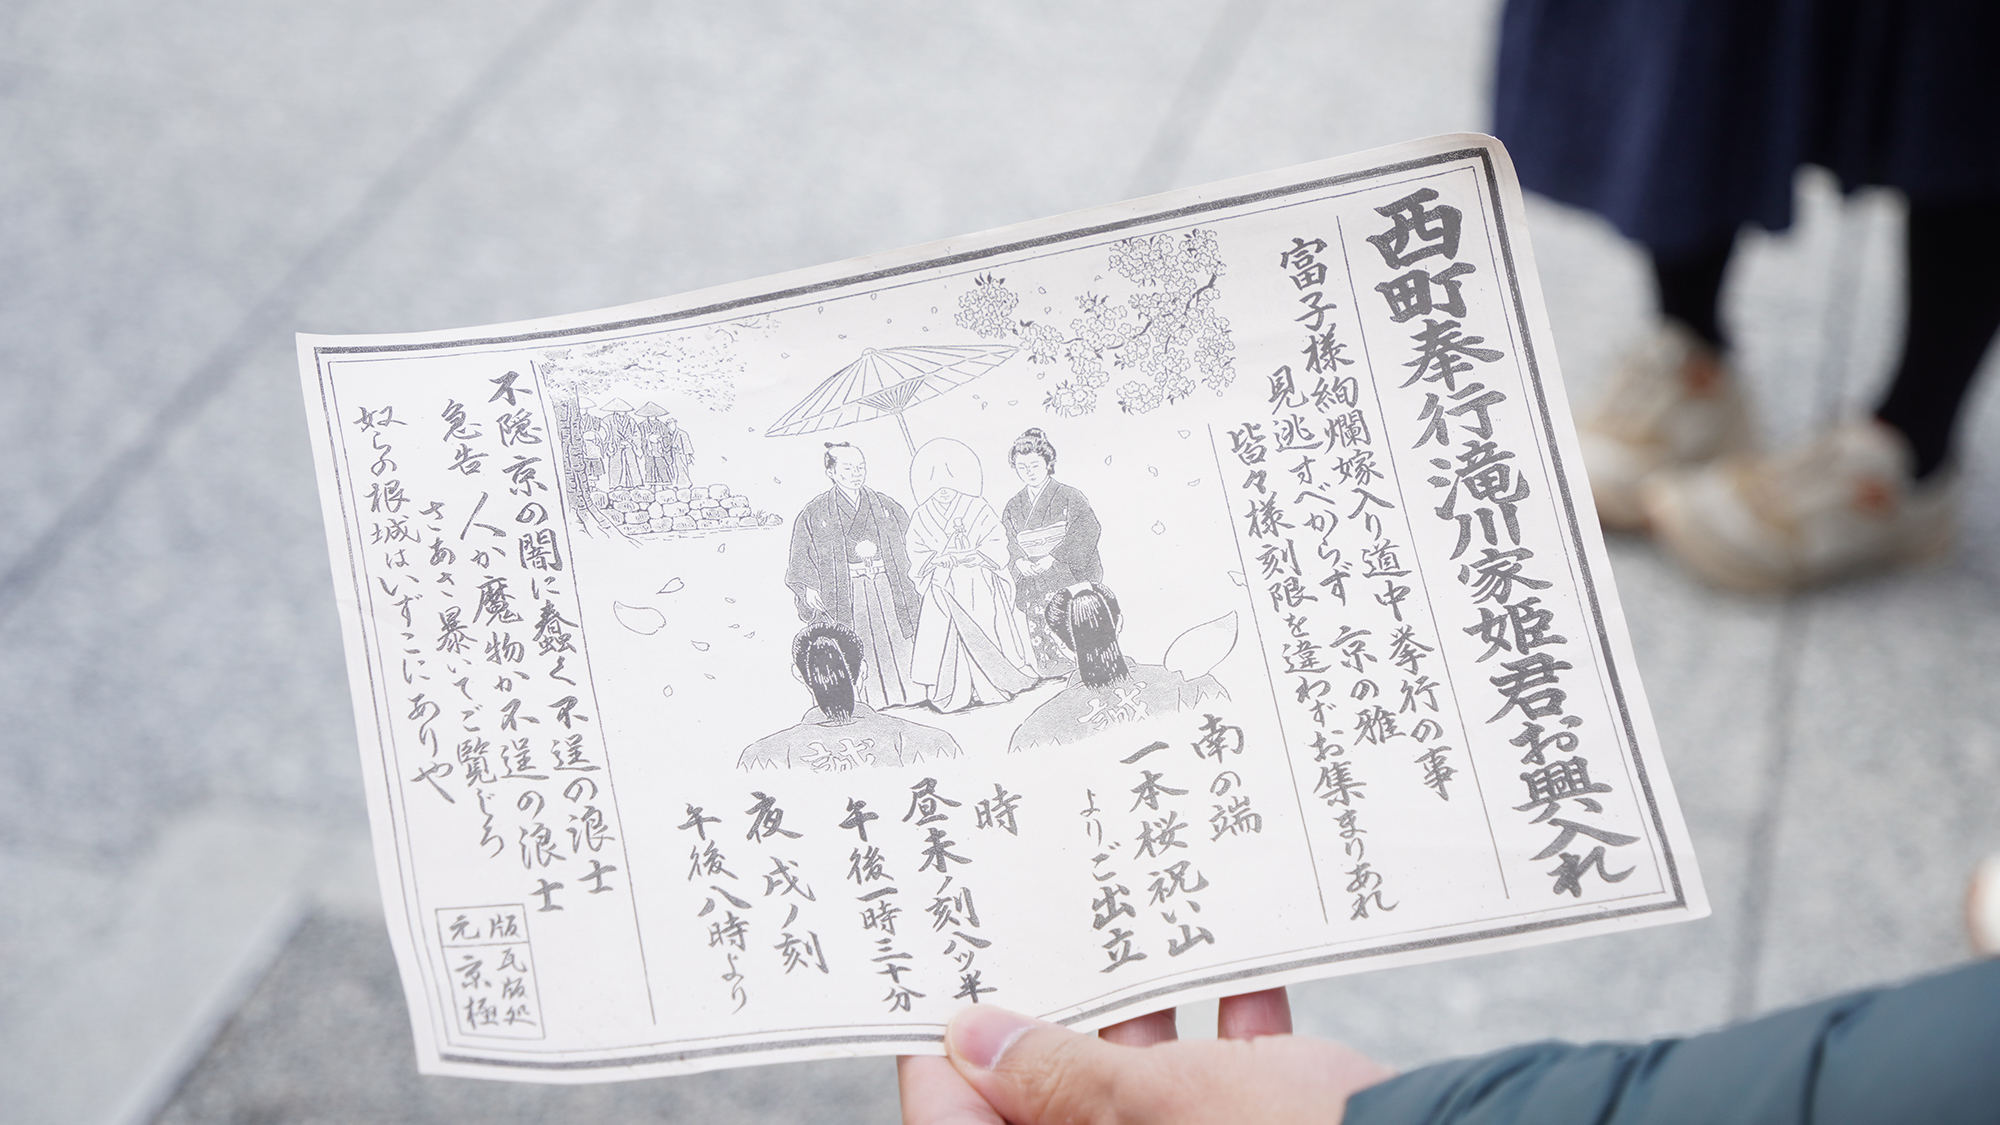 西町奉行滝川家姫君お輿入れ
富子様絢爛嫁入り道中挙行の事
見逃すべからず 京の雅
皆々様刻限を違わずお集まりあれ
南の端
一本桜祝い山
よりご出立
時
昼未ノ刻八ツ半
午後一時三十分
夜戌ノ刻
午後八時より
誠
誠
不隠京の闇に蠢く不逞の浪士
急告 人か魔物か不逞の浪士
さあさ暴いてご覧じろ
奴らの根城はいずこにありや
版元
瓦版処
京極